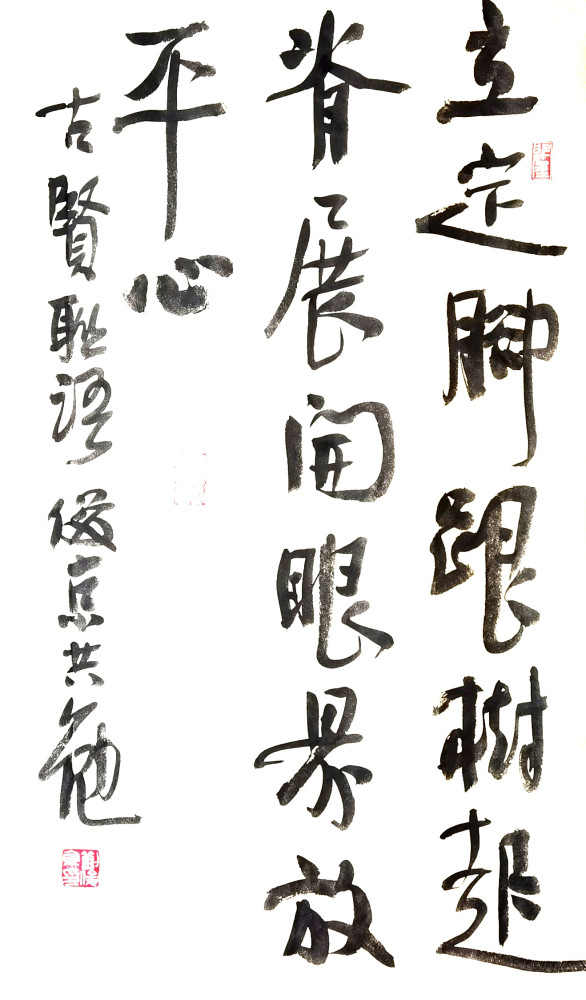 立定脚跟树起
脊展開眼界放
平心
古賢联语俊京共勉